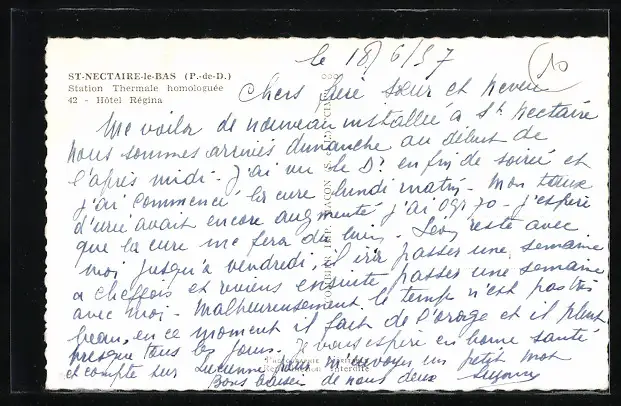 ST-NECTAIRE-le-BAS (P.-de-D.)
Station Thermale homologuée
42 - Hôtel Régina
le 18/6/57
10
Chers frère sœur et neveu
Me voila de nouveau installée à St Nectaire
nous sommes arrivés dimanche au début de
l'après midi. J'ai vu le Dr en fin de soirée et
j'ai commencé la cure lundi matin. Mon taux
d'urée avait encore augmenté j'ai 0gr70 - j'espère
que la cure me fera du bien. Léon reste avec
moi jusqu'à vendredi, il ira passer une semaine
a Cheffois et reviens ensuite passer une semaine
avec moi. Malheureusement le temps n'est pas très
beau, en ce moment il fait de l'orage et il pleut
presque tous les jours. Je vous espère en bonne santé
et compte sur Lucienne pour m'envoyer un petit mot
Bons baisers de nous deux Suzanne